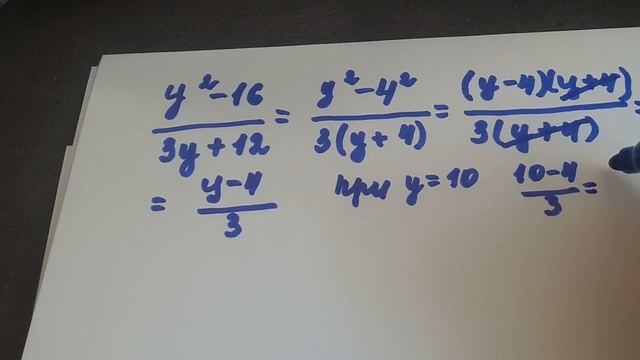 (y²-16)/(3y+12) = (y²-4²)/(3(y+4)) = ((y-4)(y+4))/(3(y+4)) =
= (y-4)/3 при y=10 (10-4)/3 =